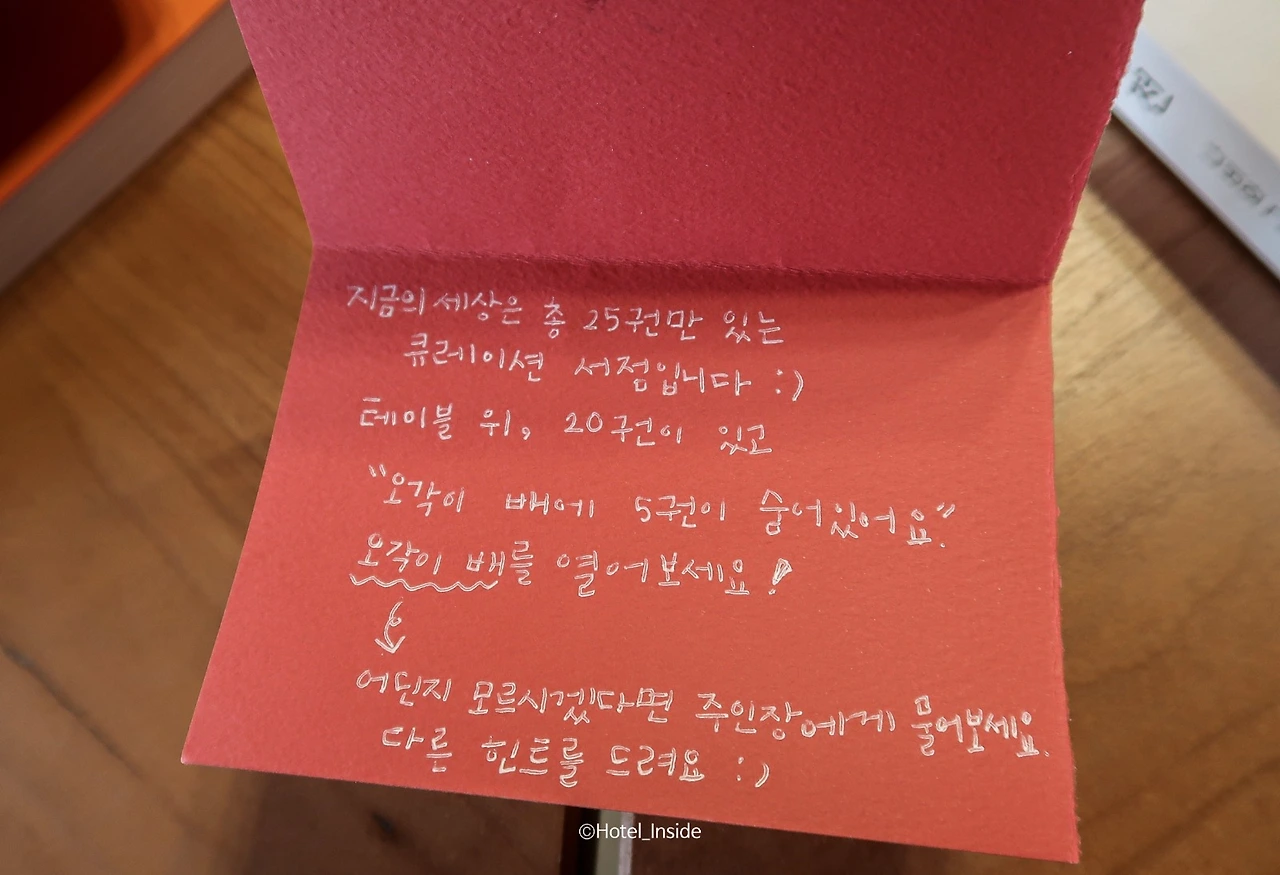 지금의 세상은 총 25권만 있는
큐레이션 서점입니다 :)
테이블 위, 20권이 있고
"오각이 배에 5권이 숨어있어요."
오각이 배를 열어보세요!
어딘지 모르시겠다면 주인장에게 물어보세요.
다른 힌트를 드려요 :)
©Hotel_Inside